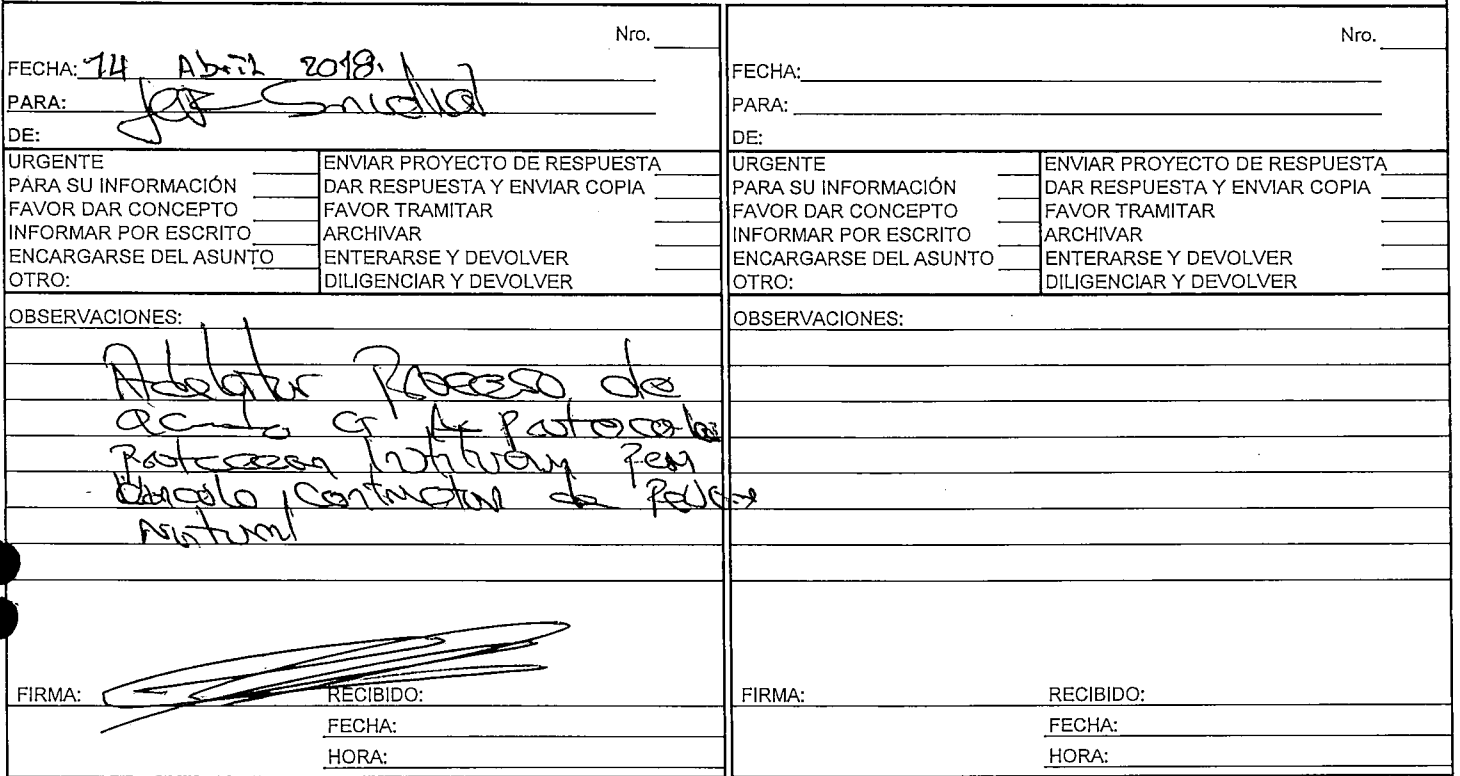 Nro.
FECHA: 14 Abril 2018.
PARA:
DE:
URGENTE
PARA SU INFORMACIÓN
FAVOR DAR CONCEPTO
INFORMAR POR ESCRITO
ENCARGARSE DEL ASUNTO
OTRO:
ENVIAR PROYECTO DE RESPUESTA
DAR RESPUESTA Y ENVIAR COPIA
FAVOR TRAMITAR
ARCHIVAR
ENTERARSE Y DEVOLVER
DILIGENCIAR Y DEVOLVER
OBSERVACIONES:
Proceso de
Natural
FIRMA:
RECIBIDO:
FECHA:
HORA:
Nro.
FECHA:
PARA:
DE:
URGENTE
PARA SU INFORMACIÓN
FAVOR DAR CONCEPTO
INFORMAR POR ESCRITO
ENCARGARSE DEL ASUNTO
OTRO:
ENVIAR PROYECTO DE RESPUESTA
DAR RESPUESTA Y ENVIAR COPIA
FAVOR TRAMITAR
ARCHIVAR
ENTERARSE Y DEVOLVER
DILIGENCIAR Y DEVOLVER
OBSERVACIONES:
FIRMA:
RECIBIDO:
FECHA:
HORA: